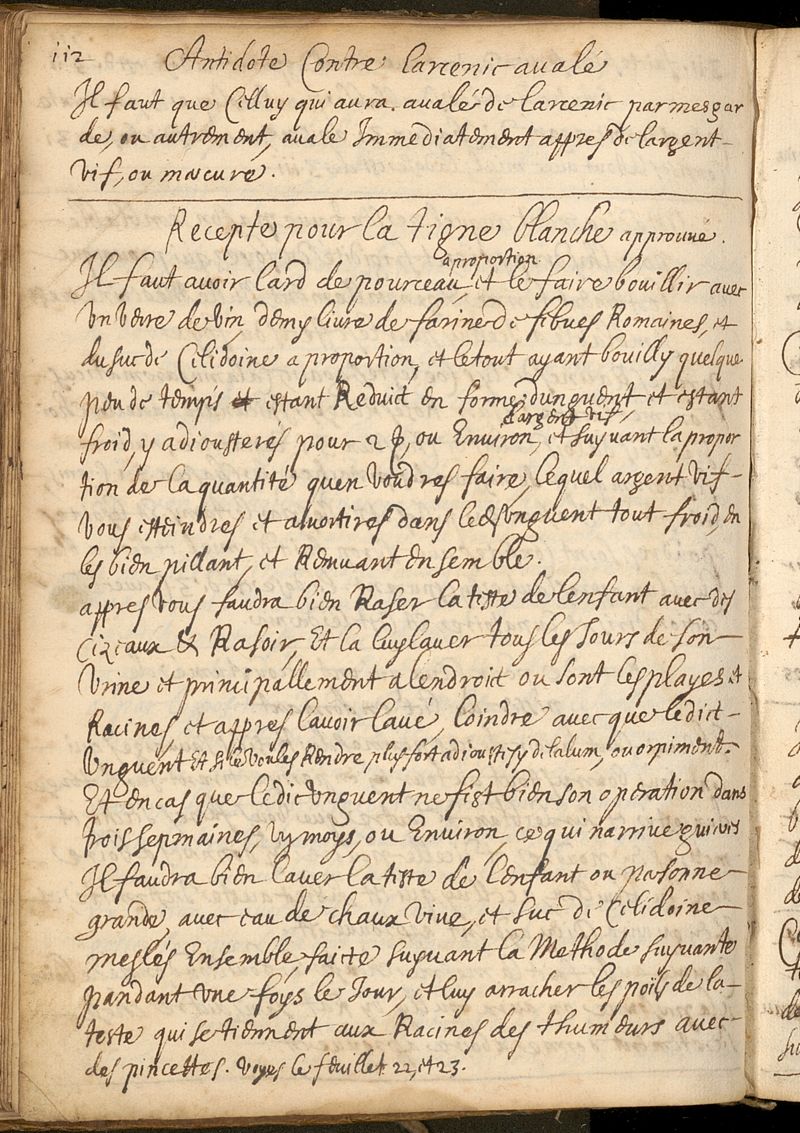 112
Antidote Contre larcenic aualé
Il faut que Celluy qui aura. aualé de larcenic par mesgar
de, ou autrement, auale Immediatement appres de largent
vif, ou mercure.
Recepte pour la tigne blanche approuué.
a proportion
Il faut auoir lard de pourceau, et le faire bouillir auec
Vn Verre de Vin, demy liure de farine de febues Romaines, et
du suc de Celidoine a proportion, et le tout ayant bouilly quelque
peu de temps et estant Reduict en forme dunguent et estant
dargent vif
froid, y adiousterés pour 2 ou Enuiron, et suyuant la propor
tion de la quantité quen voudres faire, lequel argent vif
Vous esteindres et amortires dans led unguent tout froid, en
les bien pillant, et Remuant ensemble.
appres Vous faudra bien Raser la teste de lenfant auec des
Cizeaux & Rasoir, Et la luy lauer tous les Jours de son
Vrine et principallement a lendroit ou sont les playes et
Racines, et appres lauoir laué, loindre auecque ledict
Vnguent Et si le Voules Rendre plus fort adioustes y de lalum, ou orpiment.
Et en cas que ledic Vnguent ne fist bien son operation dans
trois sepmaines, Vn moys, ou Enuiron, ce qui narriue
Il faudra bien lauer la teste de lenfant ou personne
grande, auec eau de chaux viue, et suc de Celidoine
meslés Ensemble, faicte suyuant la Methode suyuante
pandant vne foys le Jour, et luy arracher les poils de la
teste qui se tiennent aux Racines des thumeurs auec
des pincettes. Voyes le feuillet 22, et 23.